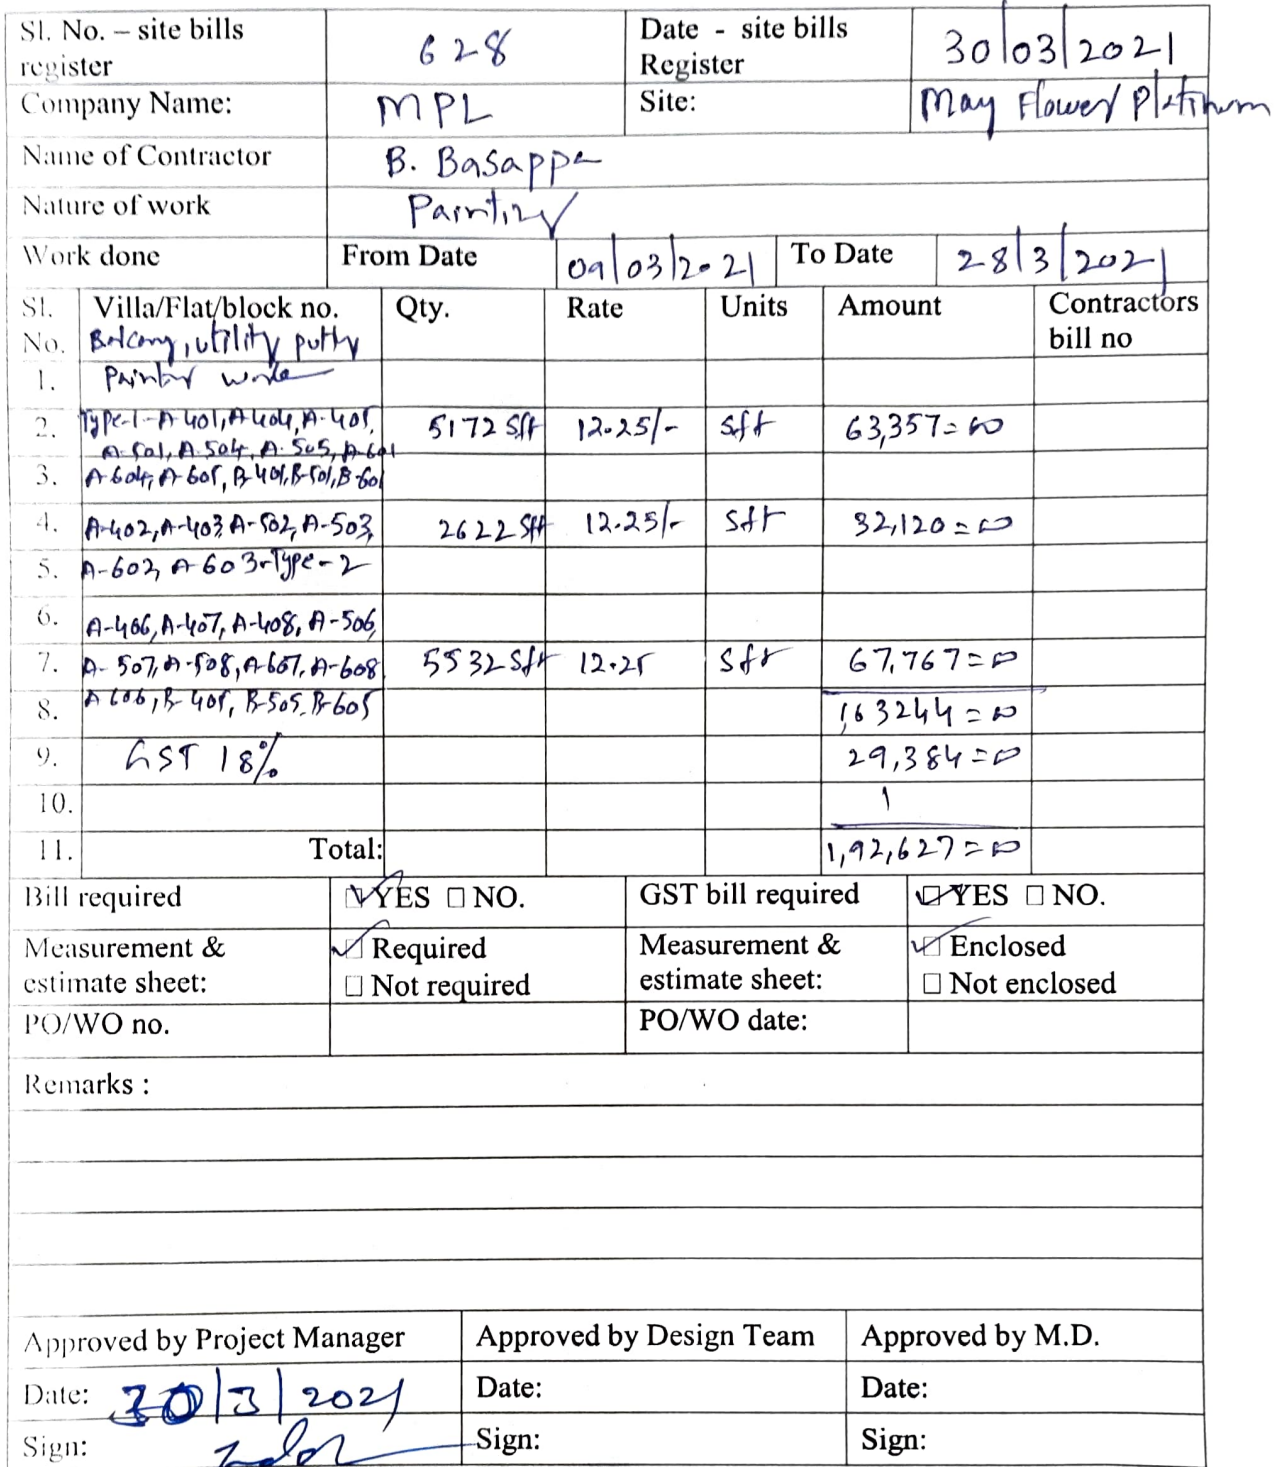 Sl. No. – site bills register 628 Date - site bills Register 30/03/2021
Company Name: MPL Site: May Flower Platinum
Name of Contractor B. Basappa
Nature of work Painting
Work done From Date 09/03/2021 To Date 28/3/2021
Sl. No. Villa/Flat/block no. Qty. Rate Units Amount Contractors bill no
Balcony, utility putty
1. Painting work
2. Type-1-A-401, A-404, A-405, 5172 Sft 12.25/- Sft 63,357=00
A-501, A-504, A-505, A-601
3. A-604, A-605, B-401, B-501, B-601
4. A-402, A-403, A-502, A-503, 2622 Sft 12.25/- Sft 32,120=00
5. A-602, A-603-Type-2
6. A-406, A-407, A-408, A-506,
7. A-507, A-508, A-607, A-608 5532 Sft 12.25 Sft 67,767=00
8. A 606, B-405, B-505, B-605 1,63244=00
9. GST 18% 29,384=00
10. 1
11. Total: 1,92,627=00
Bill required ☑ YES □ NO. GST bill required ☑ YES □ NO.
Measurement & estimate sheet: ☑ Required □ Not required Measurement & estimate sheet: ☑ Enclosed □ Not enclosed
PO/WO no. PO/WO date:
Remarks :
Approved by Project Manager Approved by Design Team Approved by M.D.
Date: 30/3/2021 Date: Date:
Sign: Sign: Sign: